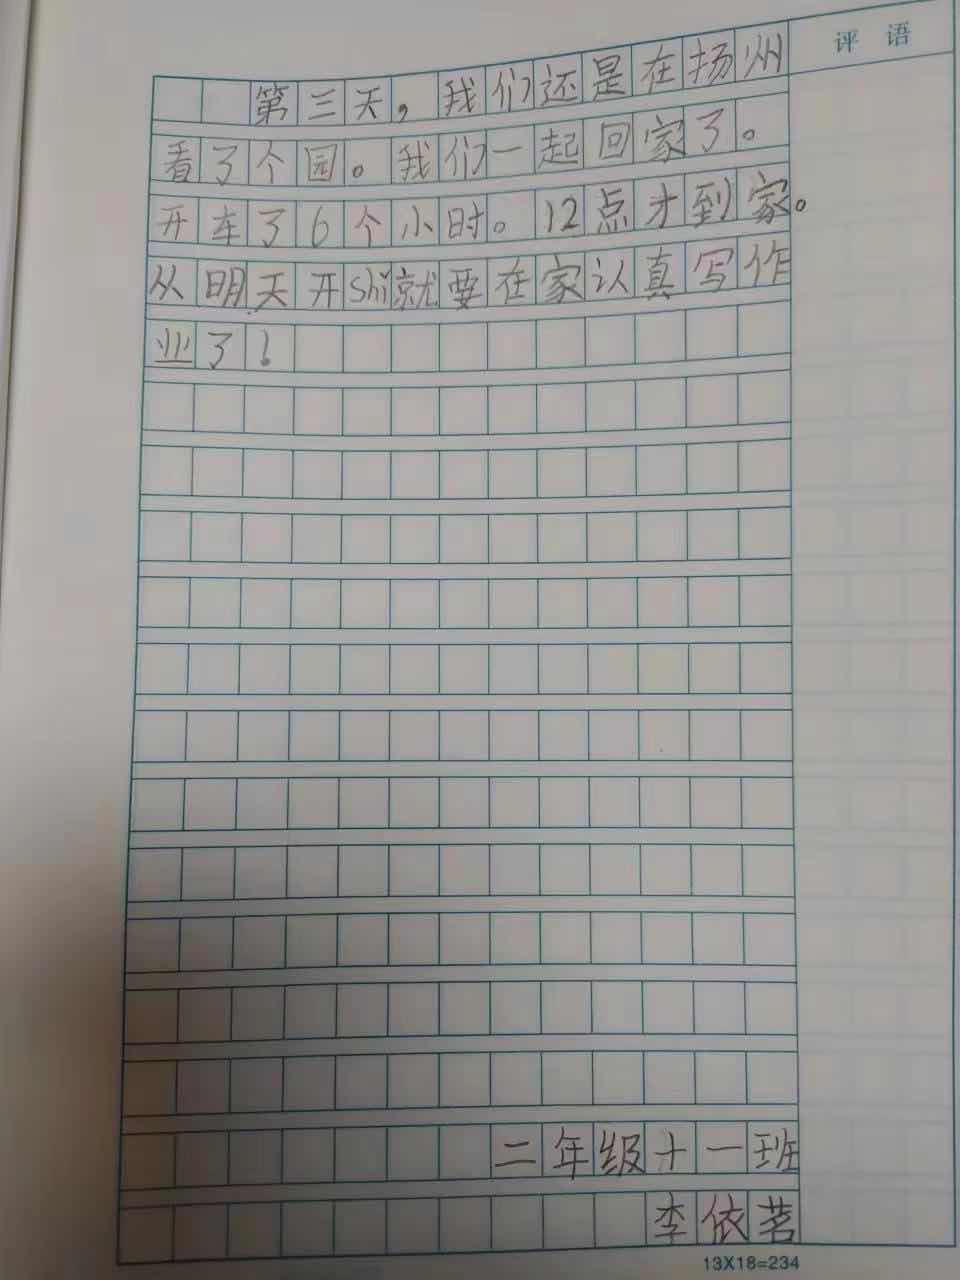 评 语
第三天，我们还是在扬州
看了个园。我们一起回家了。
开车了6个小时。12点才到家。
从明天开shi就要在家认真写作
业了！
二年级十一班
李依茗
13X18=234